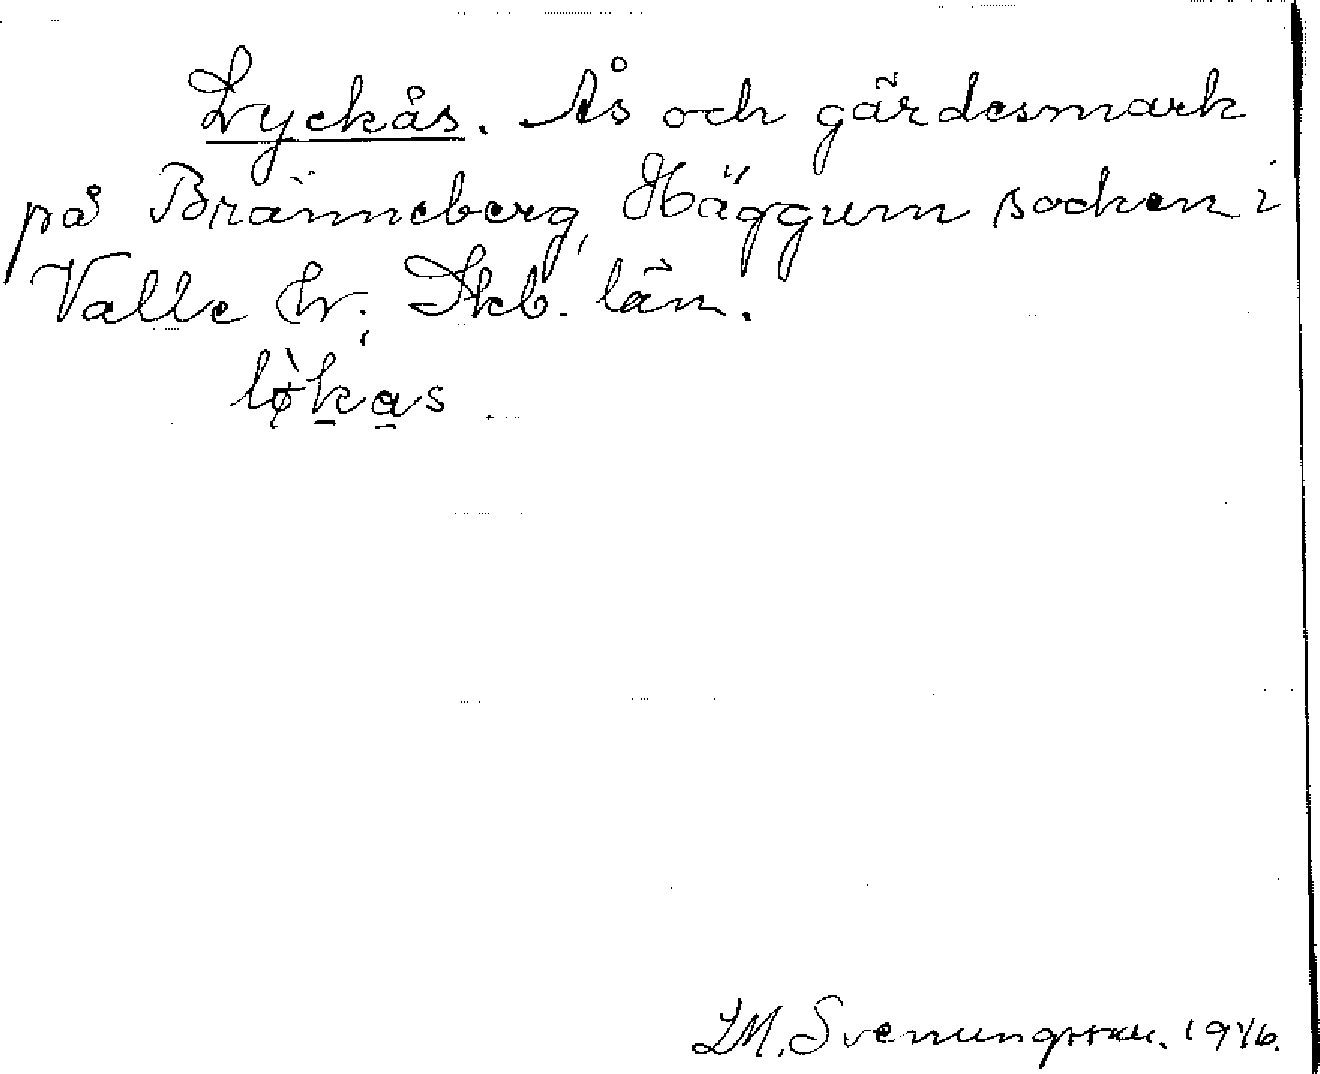 Lyckås. Ås och gärdesmark
på Bränneberg, Häggum socken i
Valle hr; Skb. län.
lø̀kas
LM. Svenungsson. 1946.